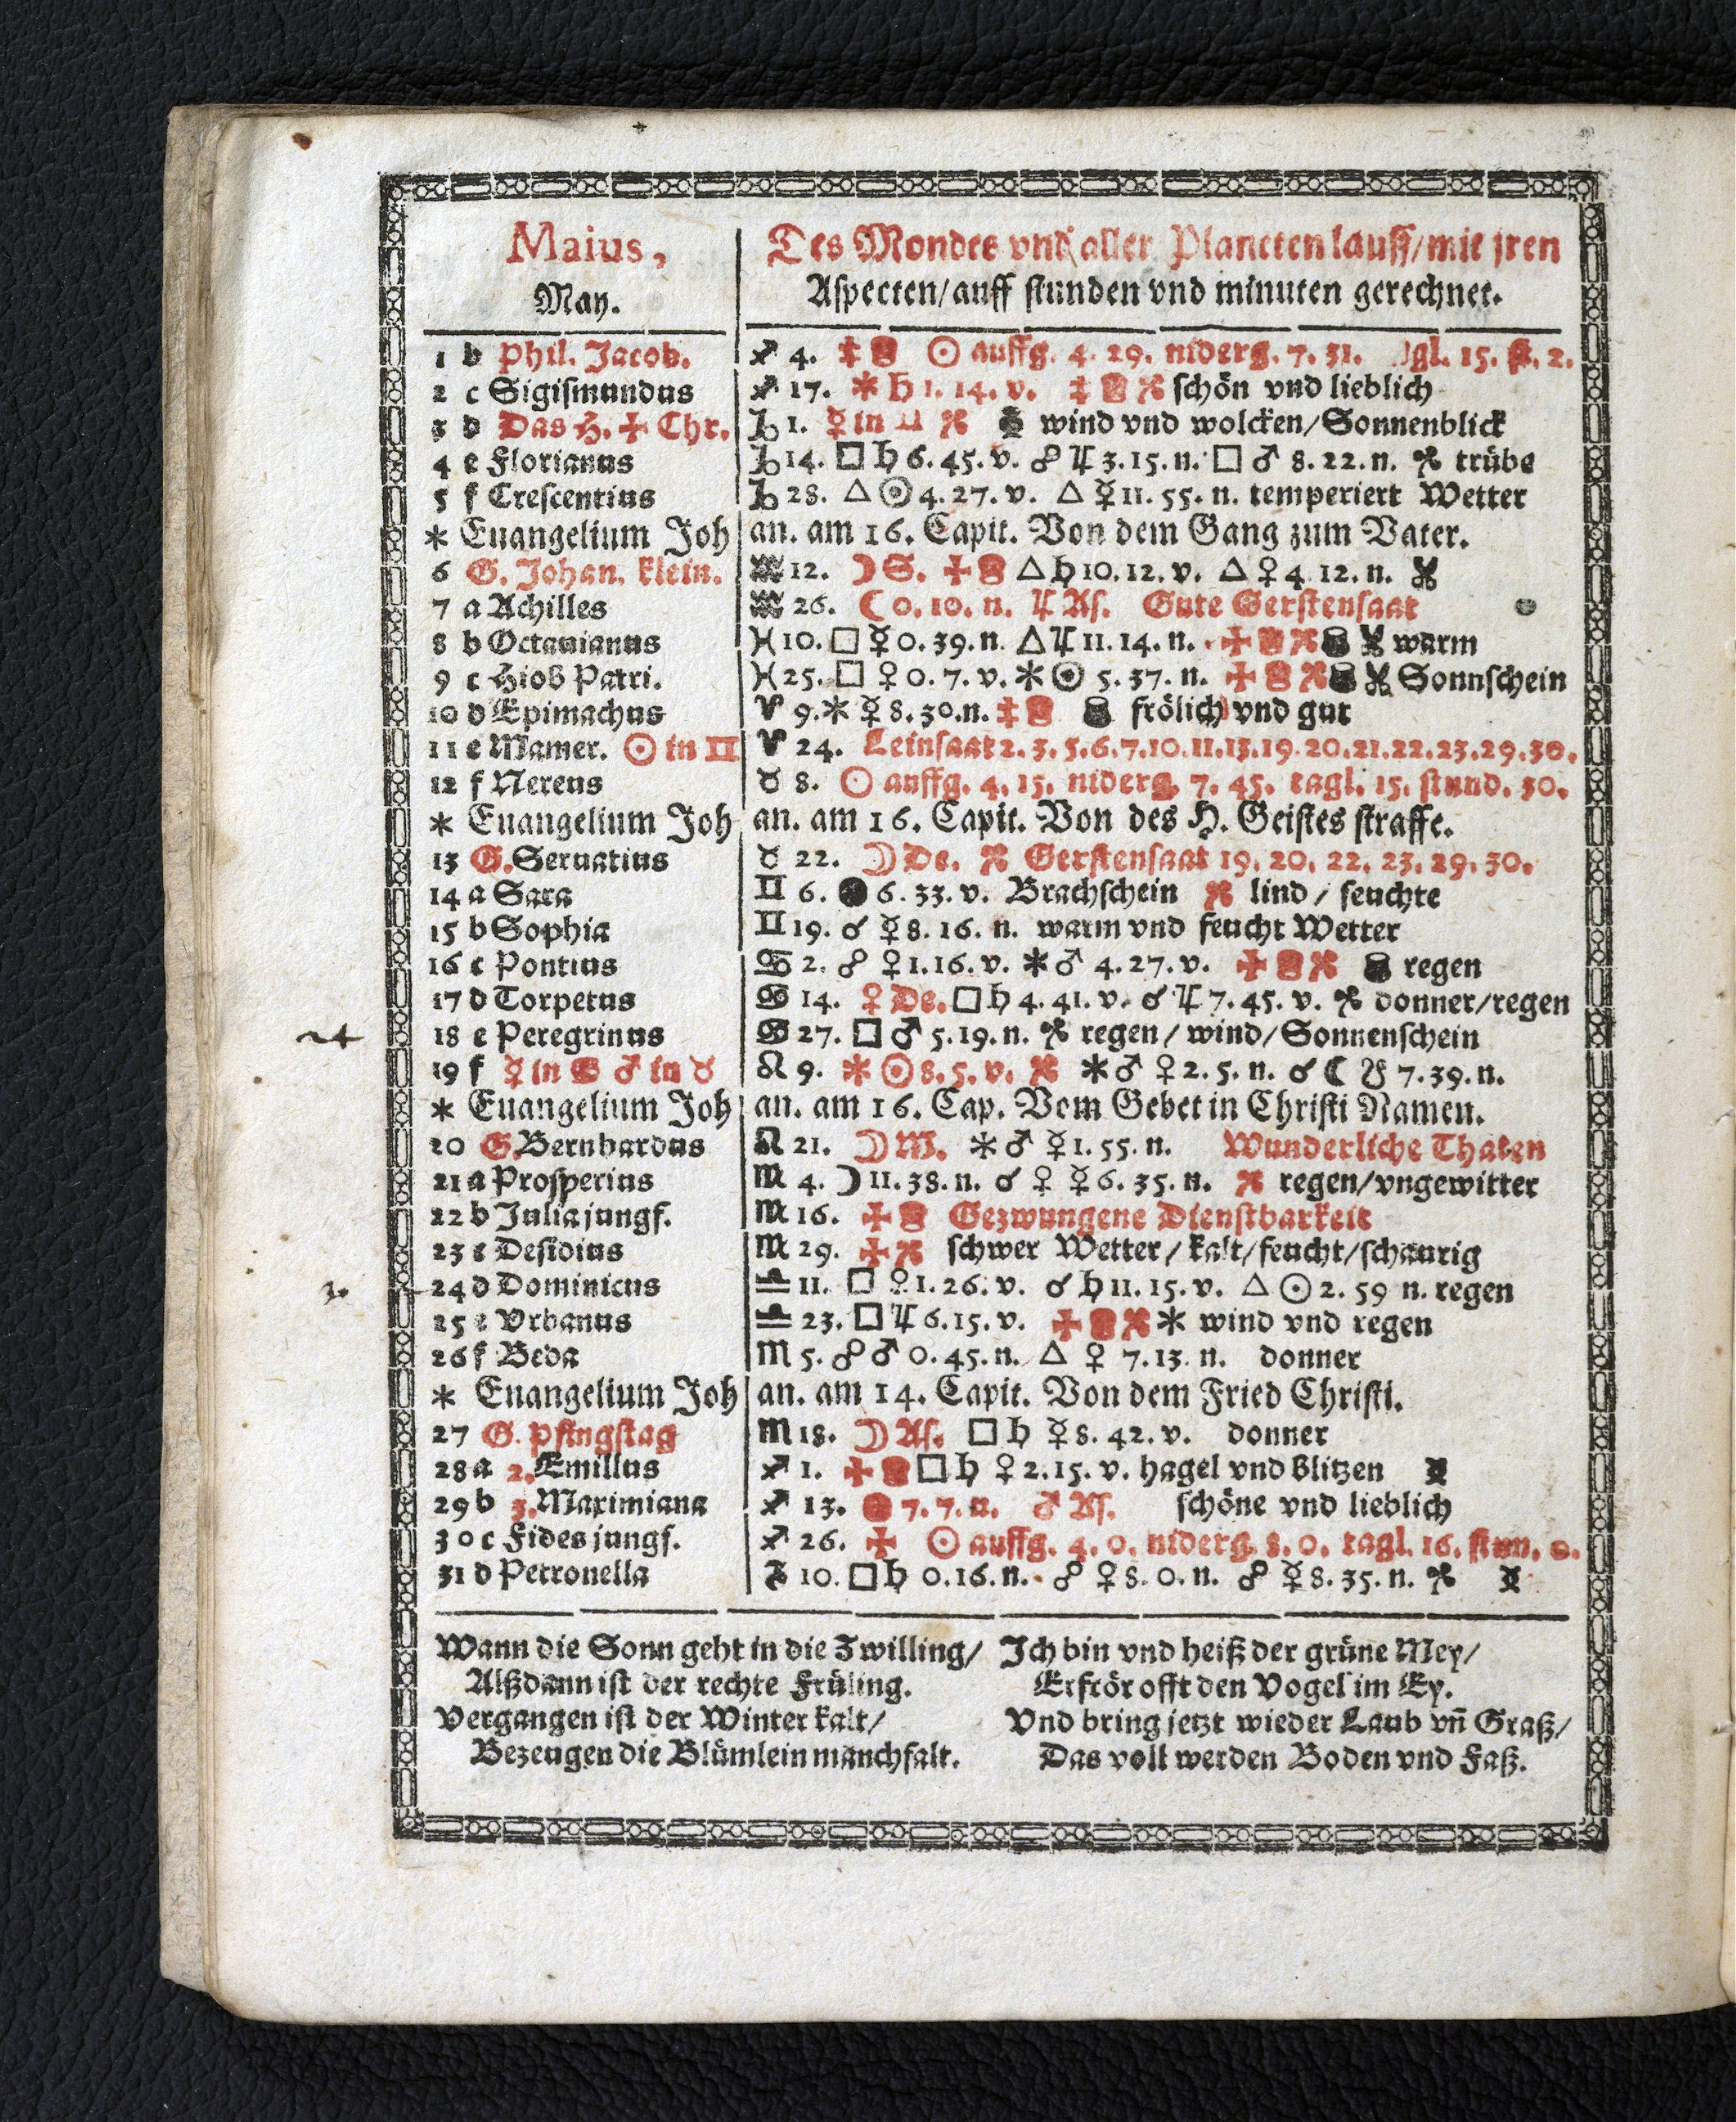 Maius,
May.
Des Mondes vnd aller Planeten lauff/mit jren
Aspecten/auff stunden vnd minuten gerechnet.
1 b Phil. Jacob. ♐ 4. ☉ auffg. 4. 29. niderg. 7. 31. gl. 15. st. 2.
2 c Sigismundus ♐ 17. ✱ ♄ 1. 14. v. schön vnd lieblich
3 d Das H. ✚ Chr. ♑ 1. ☿ in ♊ wind vnd wolcken/Sonnenblick
4 e Florianus ♑ 14. □ ♄ 6. 45. v. ☍ ♃ 3. 15. n. □ ♂ 8. 22. n. trübe
5 f Crescentius ♑ 28. △ ☉ 4. 27. v. △ ☿ 11. 55. n. temperiert Wetter
✱ Euangelium Joh an. am 16. Capit. Von dem Gang zum Vater.
6 G. Johan. klein. ♒ 12. ☽ S. ✚ △ ♄ 10. 12. v. △ ♀ 4. 12. n.
7 a Achilles ♒ 26. ☾ 0. 10. n. ♃ As. Gute Gerstensaat
8 b Octauianus ♓ 10. □ ☿ 0. 39. n. △ ♃ 11. 14. n. ✚ warm
9 c Hiob Patri. ♓ 25. □ ♀ 0. 7. v. ✱ ☉ 5. 37. n. ✚ Sonnschein
10 d Epimachus ♈ 9. ✱ ☿ 8. 30. n. frölich vnd gut
11 e Mamer. ☉ in ♊ ♈ 24. Leinsaat 2. 3. 5. 6. 7. 10. 11. 13. 19. 20. 21. 22. 23. 29. 30.
12 f Nereus ♉ 8. ☉ auffg. 4. 15. niderg. 7. 45. tagl. 15. stund. 30.
✱ Euangelium Joh an. am 16. Capit. Von des H. Geistes straffe.
13 G. Seruatius ♉ 22. ☽ De. Gerstensaat 19. 20. 22. 23. 29. 30.
14 a Sara ♊ 6. ● 6. 33. v. Brachschein lind / feuchte
15 b Sophia ♊ 19. ☌ ☿ 8. 16. n. warm vnd feucht Wetter
16 c Pontius ♋ 2. ☍ ♀ 1. 16. v. ✱ ♂ 4. 27. v. ✚ regen
17 d Torpetus ♋ 14. ♀ De. □ ♄ 4. 41. v. ☌ ♃ 7. 45. v. donner/regen
18 e Peregrinus ♋ 27. □ ♂ 5. 19. n. regen / wind/Sonnenschein
19 f ☿ in ♋ ♂ in ♉ ♌ 9. ✱ ☉ 8. 5. v. ✱ ♂ ♀ 2. 5. n. ☌ ☾ ☋ 7. 39. n.
✱ Euangelium Joh an. am 16. Cap. Vom Gebet in Christi Namen.
20 G. Bernhardus ♌ 21. ☽ M. ✱ ♂ ☿ 1. 55. n. Wunderliche Thaten
21 a Prosperius ♍ 4. ☽ 11. 38. n. ☌ ♀ ☿ 6. 35. n. regen/vngewitter
22 b Julia jungf. ♍ 16. ✚ Gezwungene Dienstbarkeit
23 c Desidius ♍ 29. ✚ schwer Wetter/ kalt/feucht/schaurig
24 d Dominicus ♎ 11. □ ♀ 1. 26. v. ☌ ♄ 11. 15. v. △ ☉ 2. 59 n. regen
25 e Vrbanus ♎ 23. □ ♃ 6. 15. v. ✚ ✱ wind vnd regen
26 f Beda ♏ 5. ☍ ♂ 0. 45. n. △ ♀ 7. 13. n. donner
✱ Euangelium Joh an. am 14. Capit. Von dem Fried Christi.
27 G. Pfingstag ♏ 18. ☽ As. □ ♄ ☿ 8. 42. v. donner
28 a 2. Æmillus ♐ 1. ✚ □ ♄ ♀ 2. 15. v. hagel vnd Blitzen
29 b 3. Maximiana ♐ 13. ● 7. 7. n. ♂ As. schöne vnd lieblich
30 c Fides jungf. ♐ 26. ✚ ☉ auffg. 4. 0. niderg. 8. 0. tagl. 16. stun. 0.
31 d Petronella ♑ 10. □ ♄ 0. 16. n. ☍ ♀ 8. 0. n. ☍ ☿ 8. 35. n.
Wann die Sonn geht in die Zwilling/
Alßdann ist der rechte Früling.
Vergangen ist der Winter kalt/
Bezeugen die Blümlein manchfalt.
Ich bin vnd heiß der grüne Mey/
Erfrör offt den Vogel im Ey.
Vnd bring jetzt wieder Laub vñ Graß/
Das voll werden Boden vnd Faß.